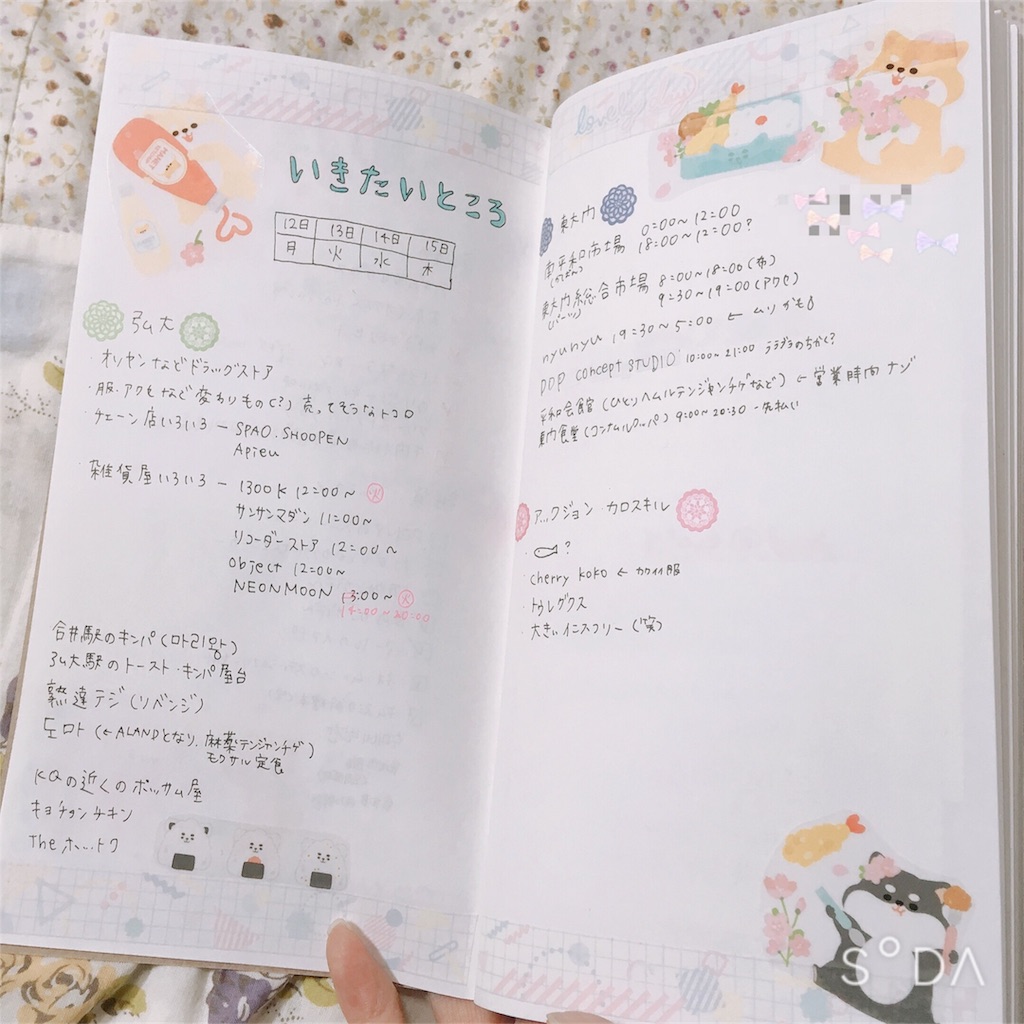 いきたいところ
12日 13日 14日 15日
月 火 水 木
弘大
・オリヤンなどドラッグストア
・服・アクセなど変わりもの(?)売ってそうなトコロ
・チェーン店いろいろ ー SPAO. SHOOPEN
Apieu
・雑貨屋いろいろ ー 1300K 12=00〜 火
サンサンマダン 11=00〜
リコーダーストア 12=00〜
Object 12=00〜
NEONMOON 13:00〜 火
14=00〜20=00
合井駅のキンパ(마리왕)
弘大駅のトースト・キンパ屋台
熟達テジ(リベンジ)
도마(←ALANDとなり、麻薬テンジャンチゲ)
モクサル定食
KQの近くのポッサム屋
キョチョンチキン
Theホットク
lovely day
東大門
南平和市場 0=00〜12=00
(かばん) 18=00〜12=00?
東大門総合市場 8=00〜18=00(布)
(パーツ) 9=30〜19=00(アクセ)
nyunyu 19=30〜5=00 ← ムリかも
DDP concept STUDIO 10:00〜21:00 デジプラのちかく?
平和会館(ひとりヘムルテンジャンチゲなど)←営業時間ナゾ
東門食堂(コンナムルクッパ)9:00〜20:30 -先払い
アックジョン・カロスキル
・?
・cherry koko ← カワイイ服
・トゥレグクス
・大きいイニスフリー(笑)
SODA